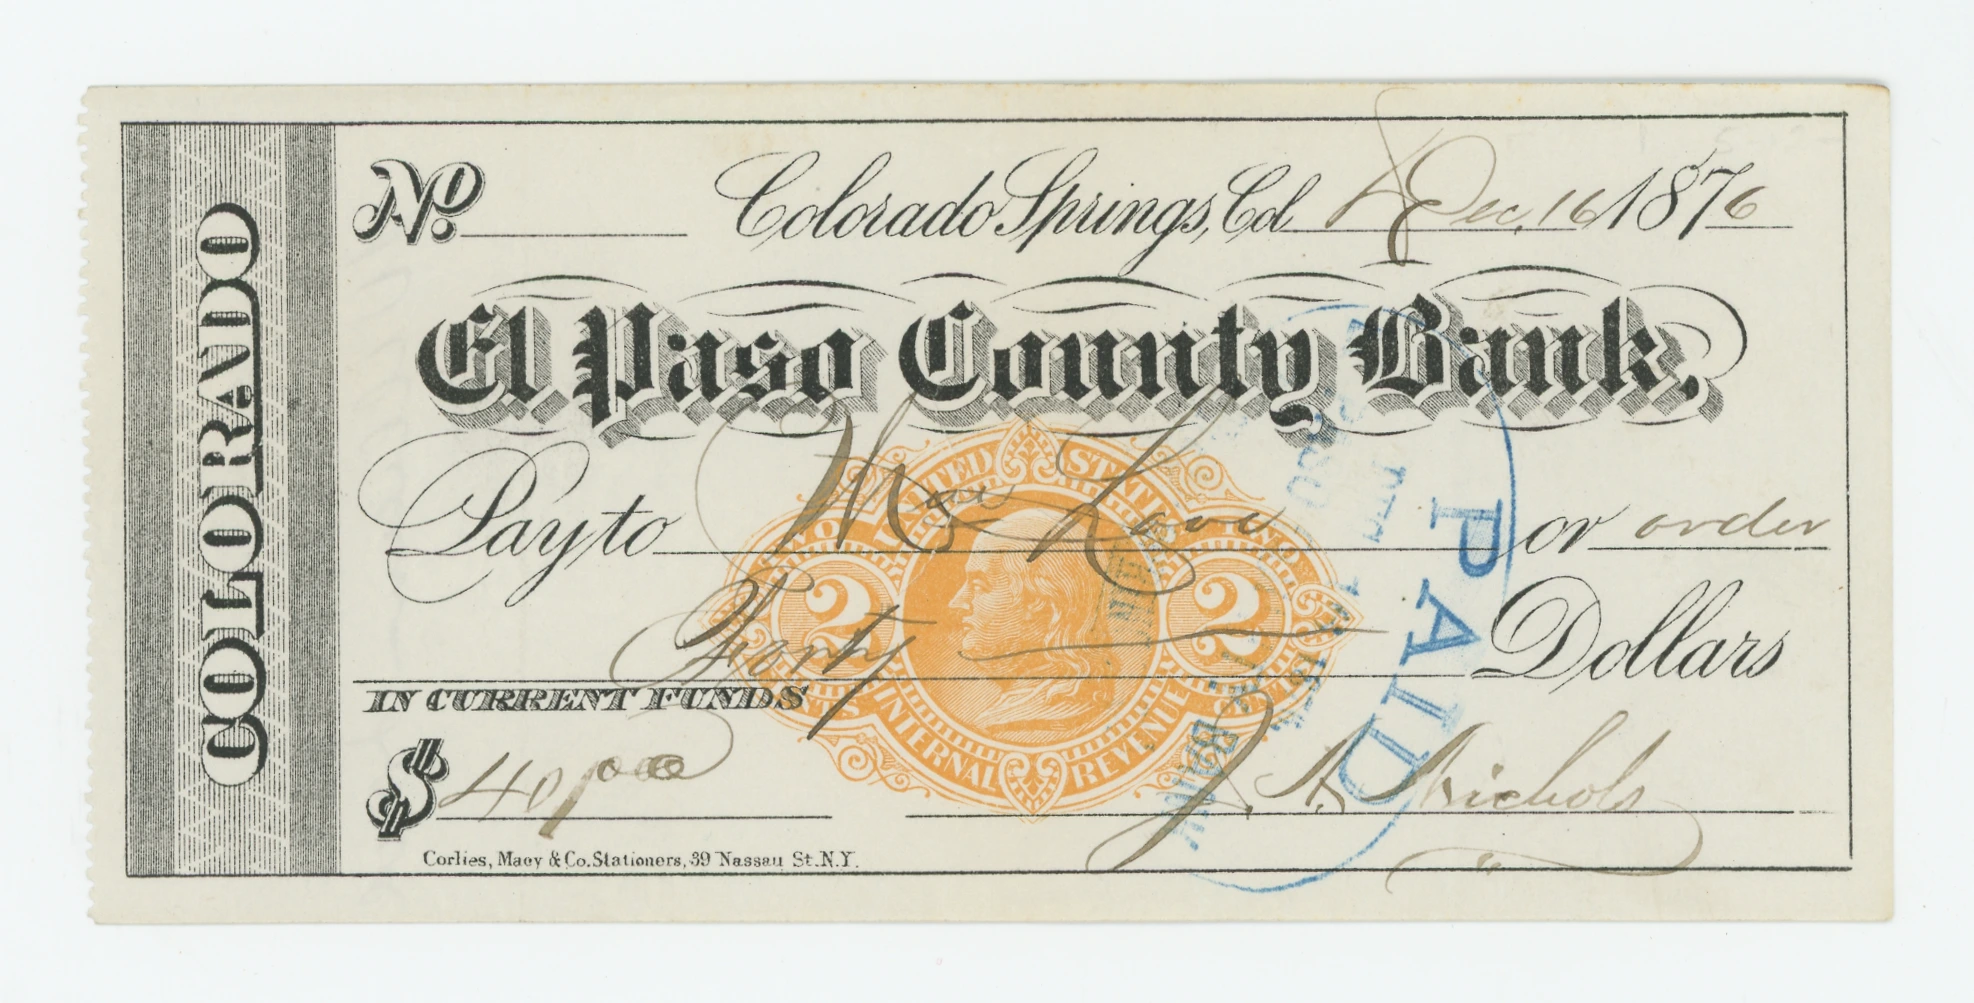 COLORADO
No. Colorado Springs, Col Dec. 16 1876
El Paso County Bank,
Pay to Mrs Love or order
Forty Dollars
IN CURRENT FUNDS
$ 40/00
J. S. Nichols
Corlies, Macy & Co. Stationers, 39 Nassau St. N.Y.
UNITED STATES
INTERNAL REVENUE
TWO CENTS
2 2
PAID